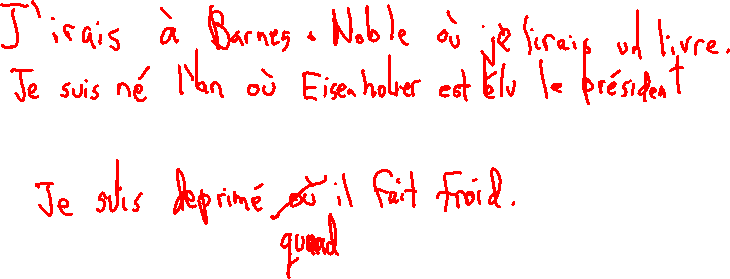 J'irais à Barnes & Noble où je lirais un livre.
Je suis né l'an où Eisenhower est élu le président
Je suis deprimé où il fait froid.
quand